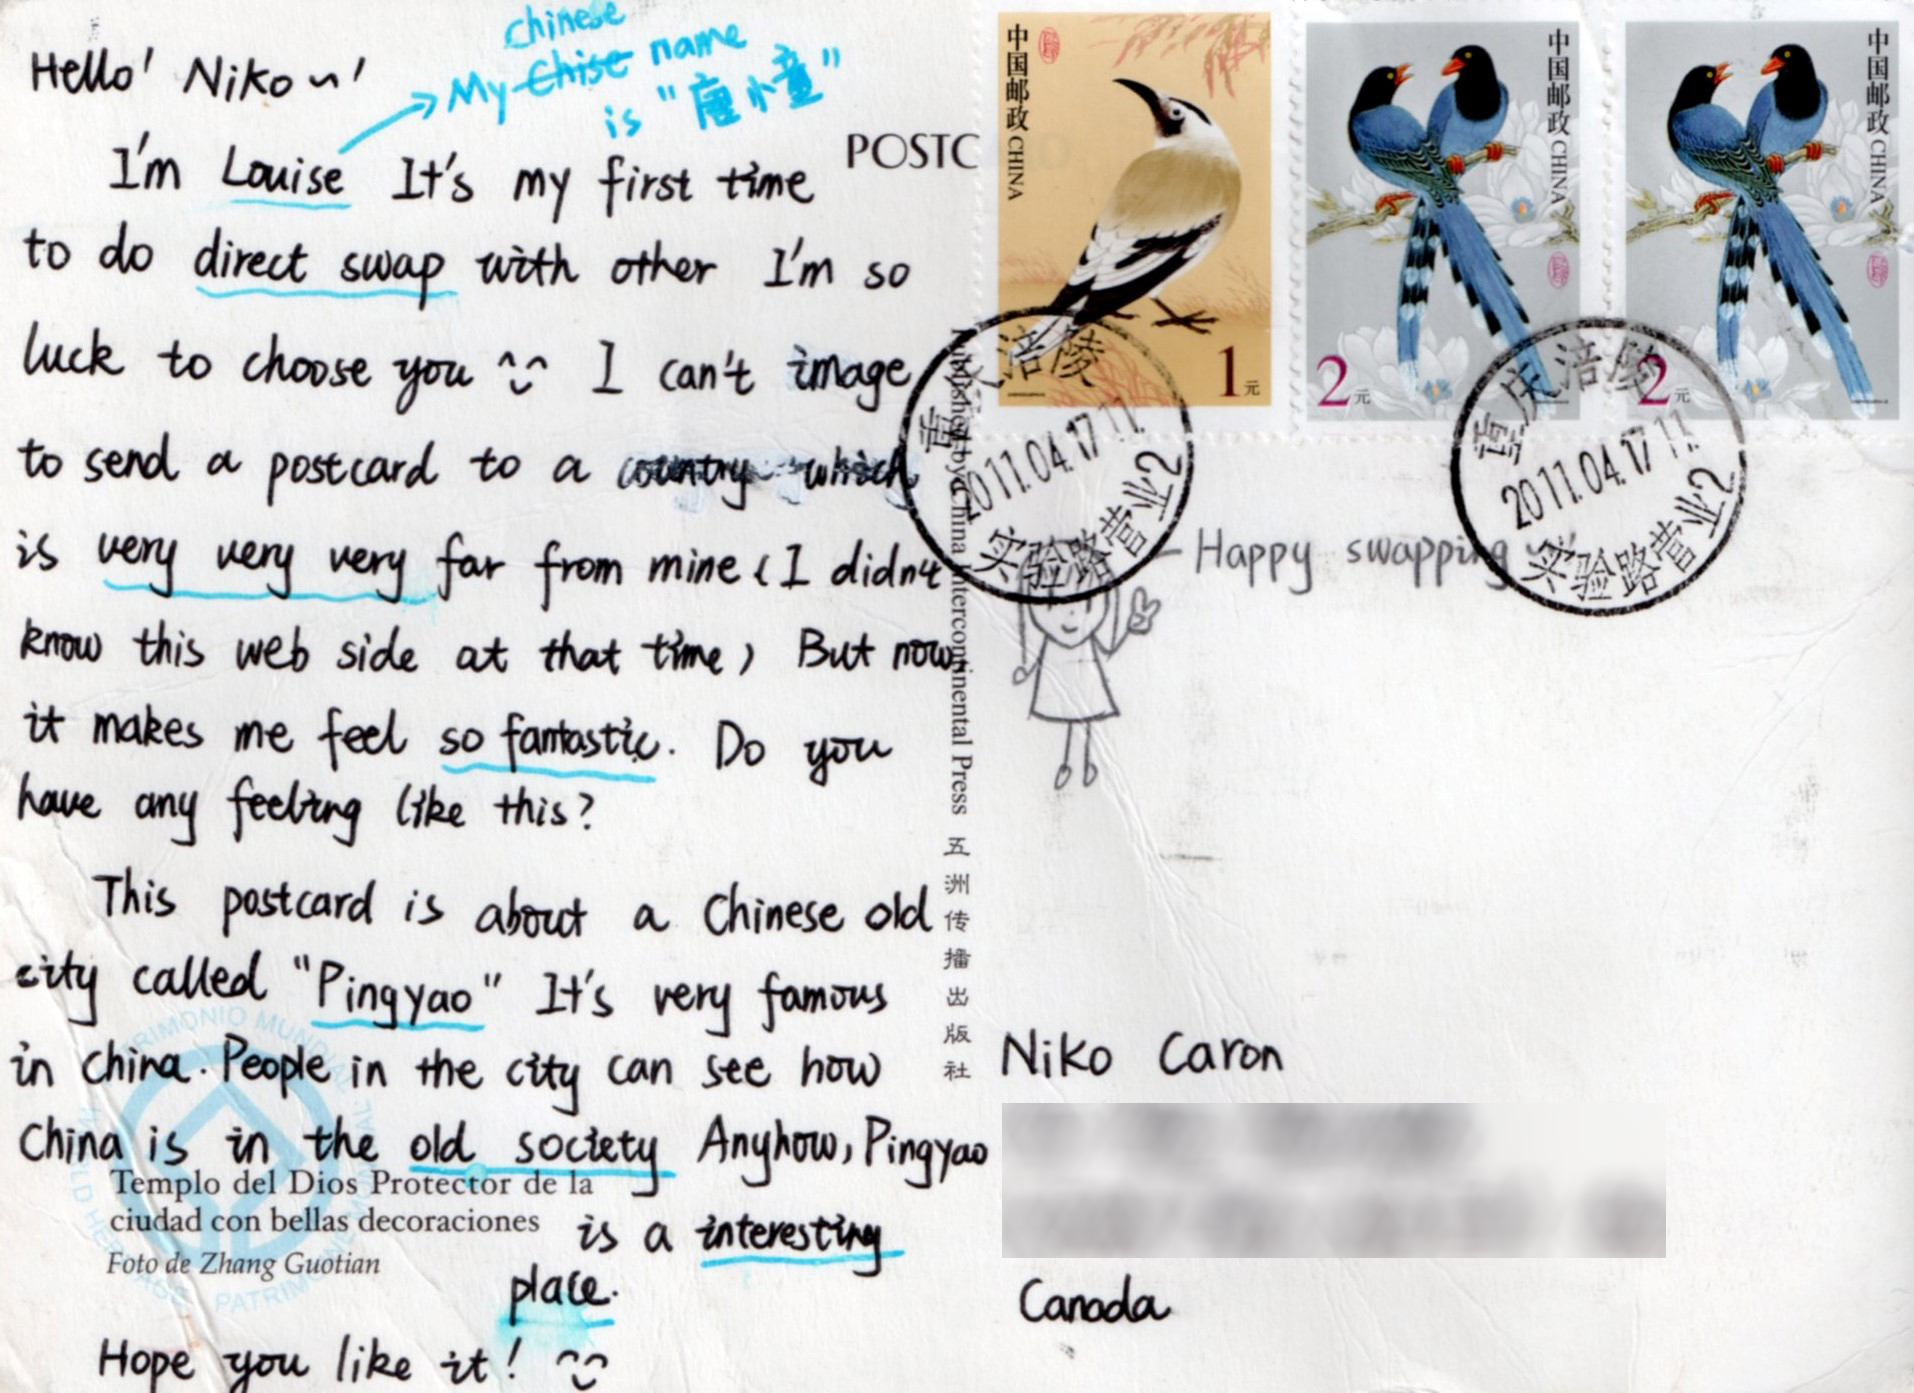 Hello! Niko~!
chinese
My Chise name
is "唐小童"
I'm Louise It's my first time
to do direct swap with other I'm so
luck to choose you ^^ I can't image
to send a postcard to a country which
is very very very far from mine (I didn't
know this web side at that time) But now
it makes me feel so fantastic. Do you
have any feeling like this?
This postcard is about a Chinese old
city called "Pingyao" It's very famous
in china. People in the city can see how
China is in the old society Anyhow, Pingyao
is a interesting
place.
Hope you like it! ^^
Templo del Dios Protector de la
ciudad con bellas decoraciones
Foto de Zhang Guotian
PATRIMONIO MUNDIAL
POSTC
Published by China Intercontinental Press 五洲传播出版社
中国邮政 CHINA
1元
中国邮政 CHINA
2元
中国邮政 CHINA
2元
涪陵
2011.04.17 11
实验路营业2
重庆涪陵
2011.04.17 11
实验路营业2
Happy swapping
Niko Caron
Canada